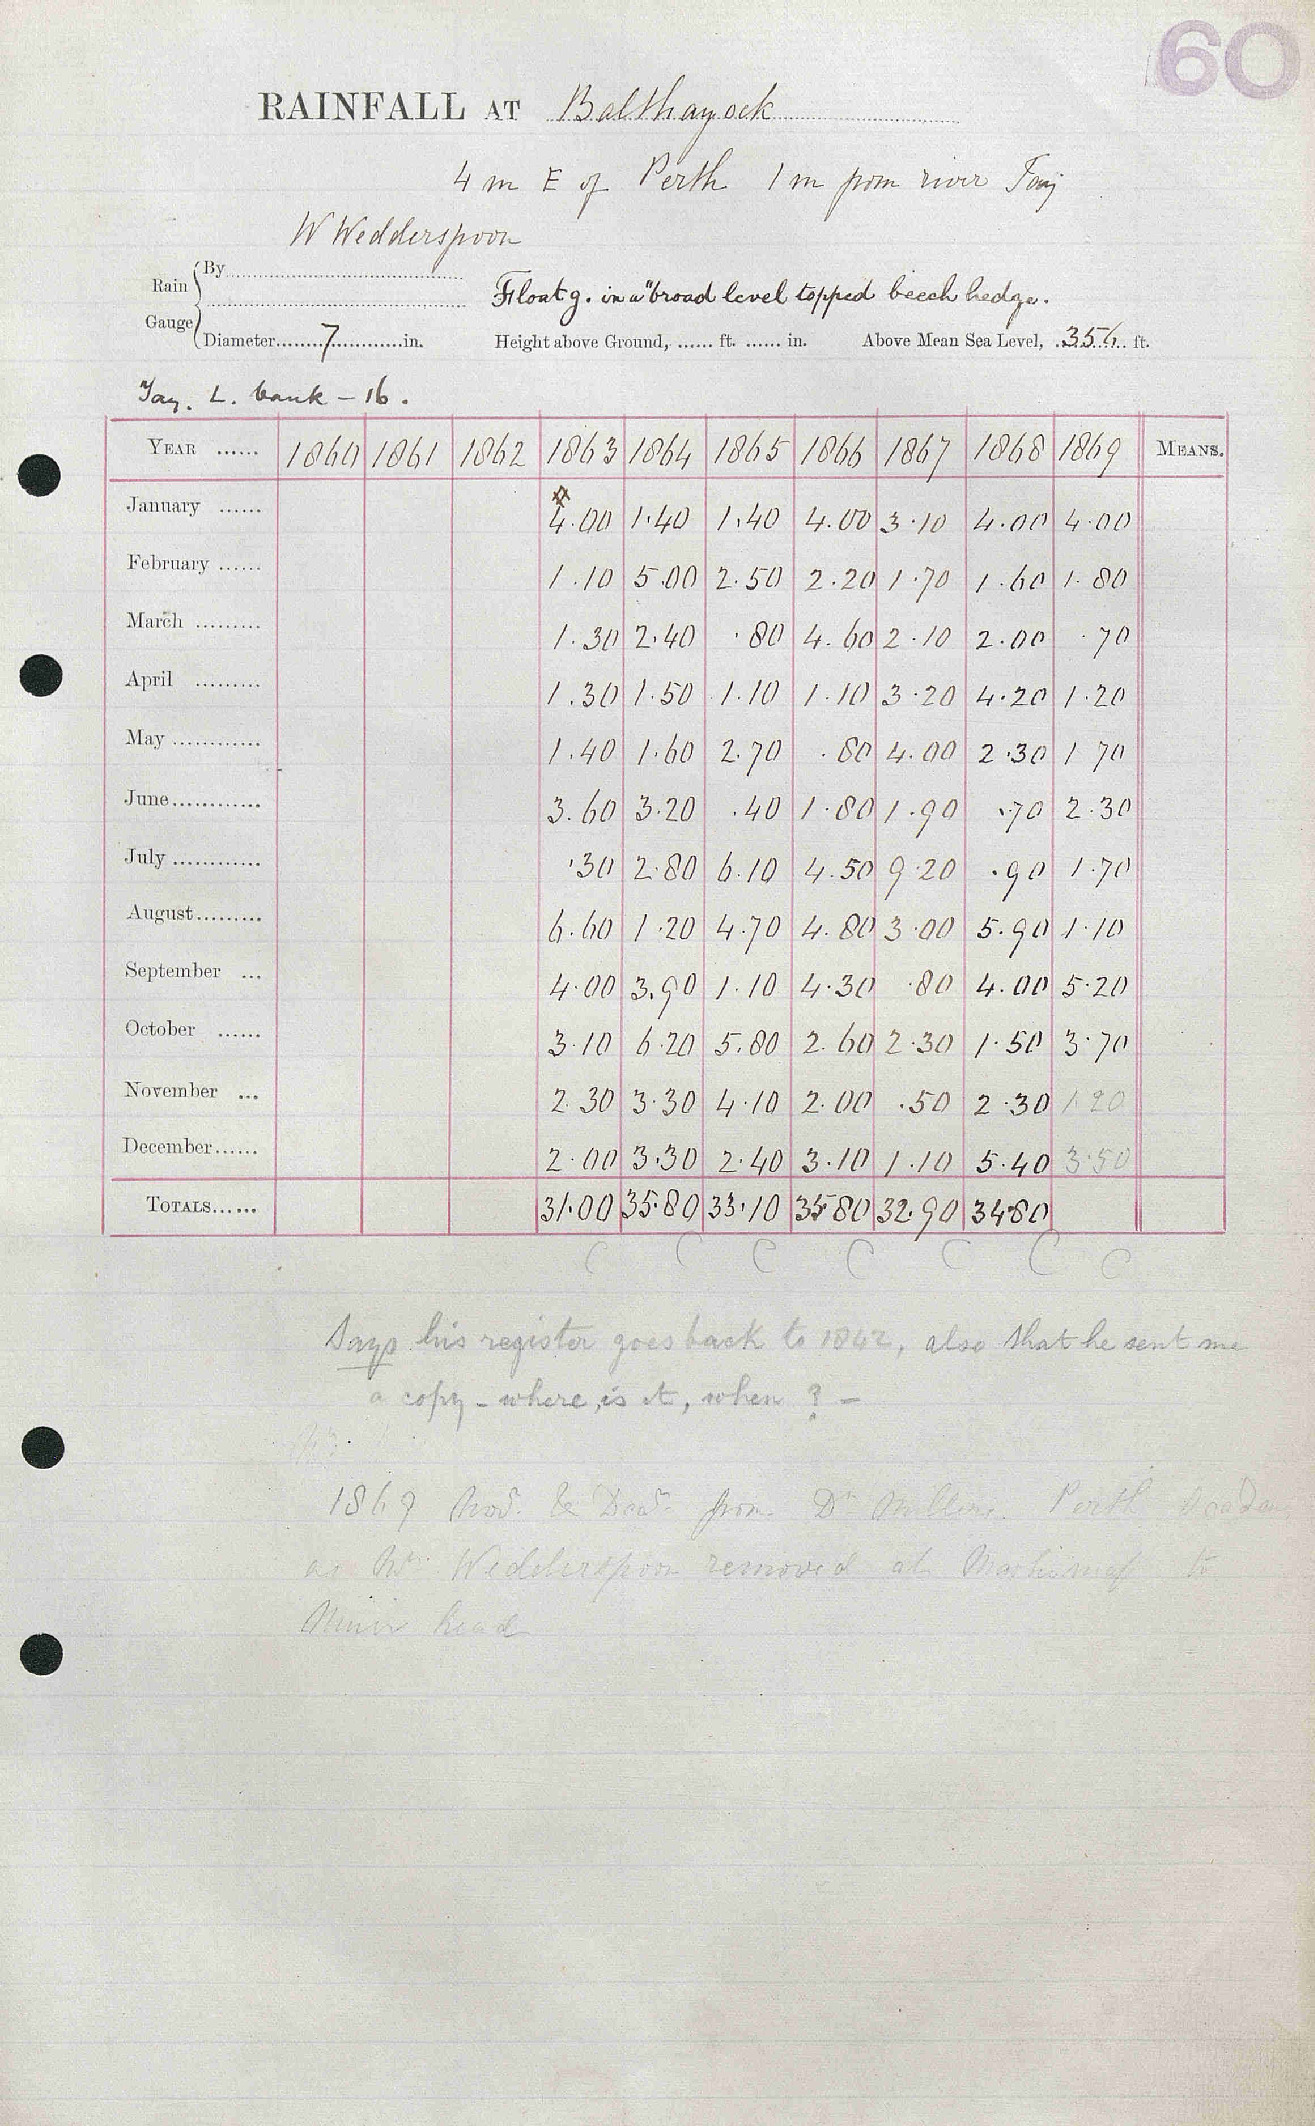 60
RAINFALL AT Balthayock
4 m E of Perth 1 m from river Tay
W Wedderspoon
Rain Gauge By
Float g. in a "broad level topped beech hedge.
Diameter 7 in. Height above Ground, ...... ft. ...... in. Above Mean Sea Level, 354 ft.
Tay. L. bank - 16.
YEAR ...... 1860 1861 1862 1863 1864 1865 1866 1867 1868 1869 MEANS.
January ...... 4.00 1.40 1.40 4.00 3.10 4.00 4.00
February ...... 1.10 5.00 2.50 2.20 1.70 1.60 1.80
March ......... 1.30 2.40 .80 4.60 2.10 2.00 .70
April ......... 1.30 1.50 1.10 1.10 3.20 4.20 1.20
May ............ 1.40 1.60 2.70 .80 4.00 2.30 1 70
June ............ 3.60 3.20 .40 1.80 1.90 .70 2.30
July ............ .30 2.80 6.10 4.50 9.20 .90 1.70
August ......... 6.60 1.20 4.70 4.80 3.00 5.90 1.10
September ... 4.00 3.90 1.10 4.30 .80 4.00 5.20
October ...... 3.10 6.20 5.80 2.60 2.30 1.50 3.70
November ... 2.30 3.30 4.10 2.00 .50 2.30 1.20
December ...... 2.00 3.30 2.40 3.10 1.10 5.40 3.50
TOTALS ...... 31.00 35.80 33.10 35.80 32.90 34.80
C C C C C C C
Says his register goes back to 1842, also that he sent me
a copy - where is it, when ? -
1869 Nov. & Dec. from Dr Perth
as Mr Wedderspoon removed at Martinmas to
Muir head